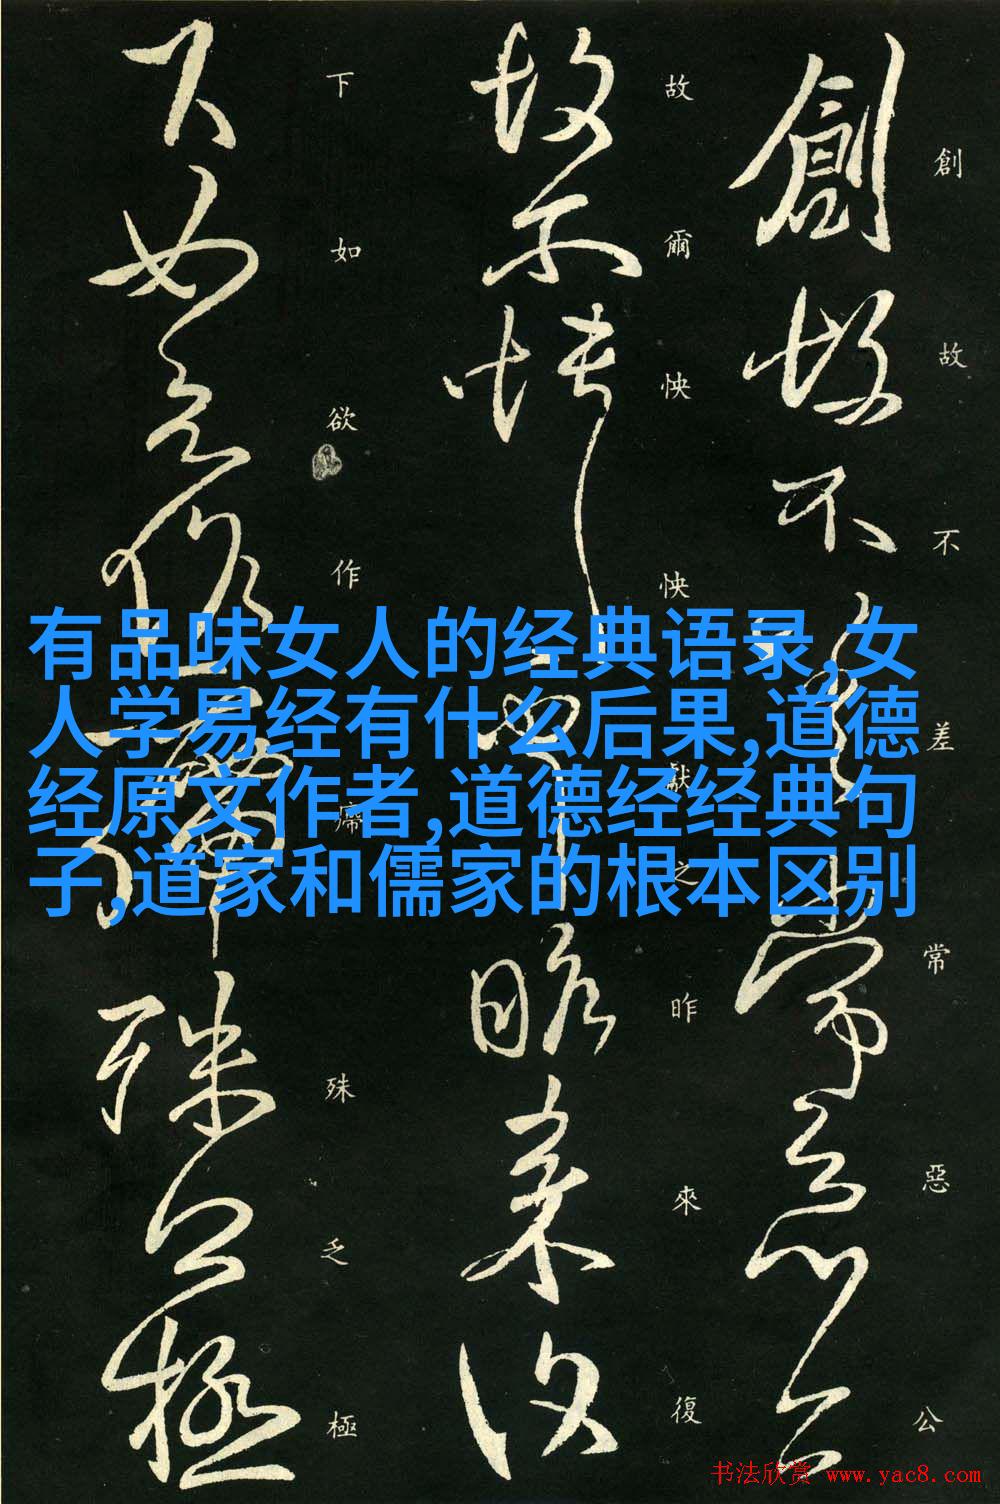 創故不差常惡公
故爾怏怏獻之昨來復
下如欲作癤殊乏極
有品味女人的经典语录,女
人学易经有什么后果,道德
经原文作者,道德经经典句
子,道家和儒家的根本区别
书法欣赏 www.yac8.com